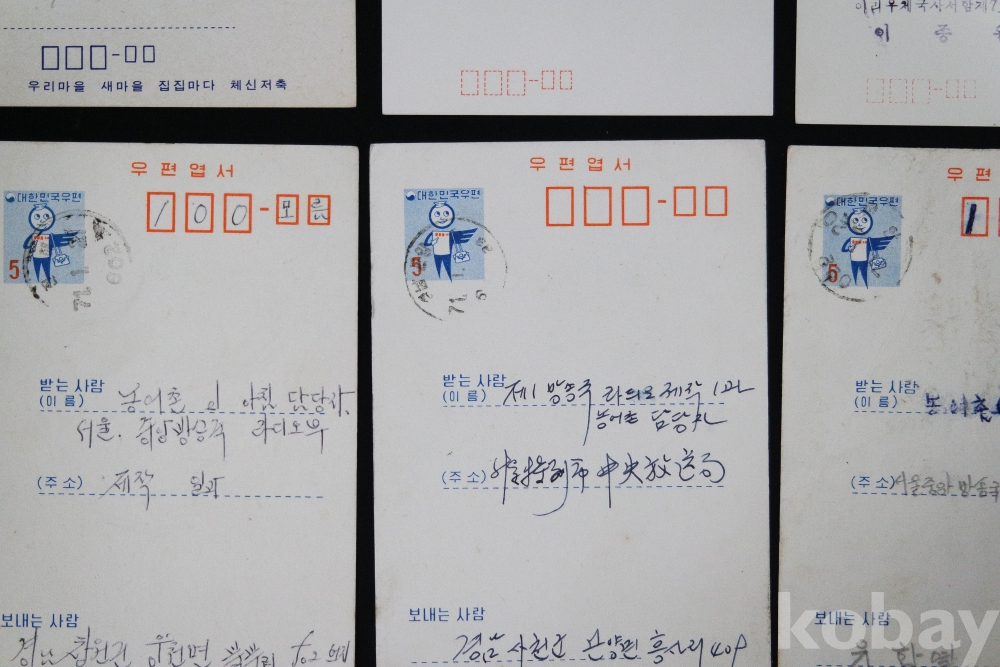 우리마을 새마을 집집마다 체신저축
이리우체국사서함제7
이 종
우편엽서
대한민국우편
5
100-모름
71.1
받는 사람
(이 름)
농어촌의 아침 담당자
서울. 중앙방송국 라디오부
(주 소)
제작 일과
보내는 사람
경남 창원군 웅천면
우편엽서
대한민국우편
5
71.1
받는 사람
(이 름)
제1방송국 라디오제작1과
농어촌 담당자
(주 소)
中央放送局
보내는 사람
경남 사천군 곤양면 흥사리 409
우편
대한민국우편
5
1
받는 사람
(이 름)
농어촌
(주 소)
서울중앙방송국
보내는 사람
kobay